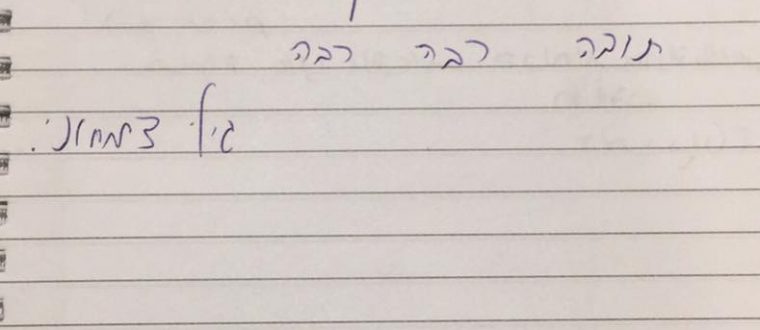 תודה רבה רבה
גיל צמחוני.